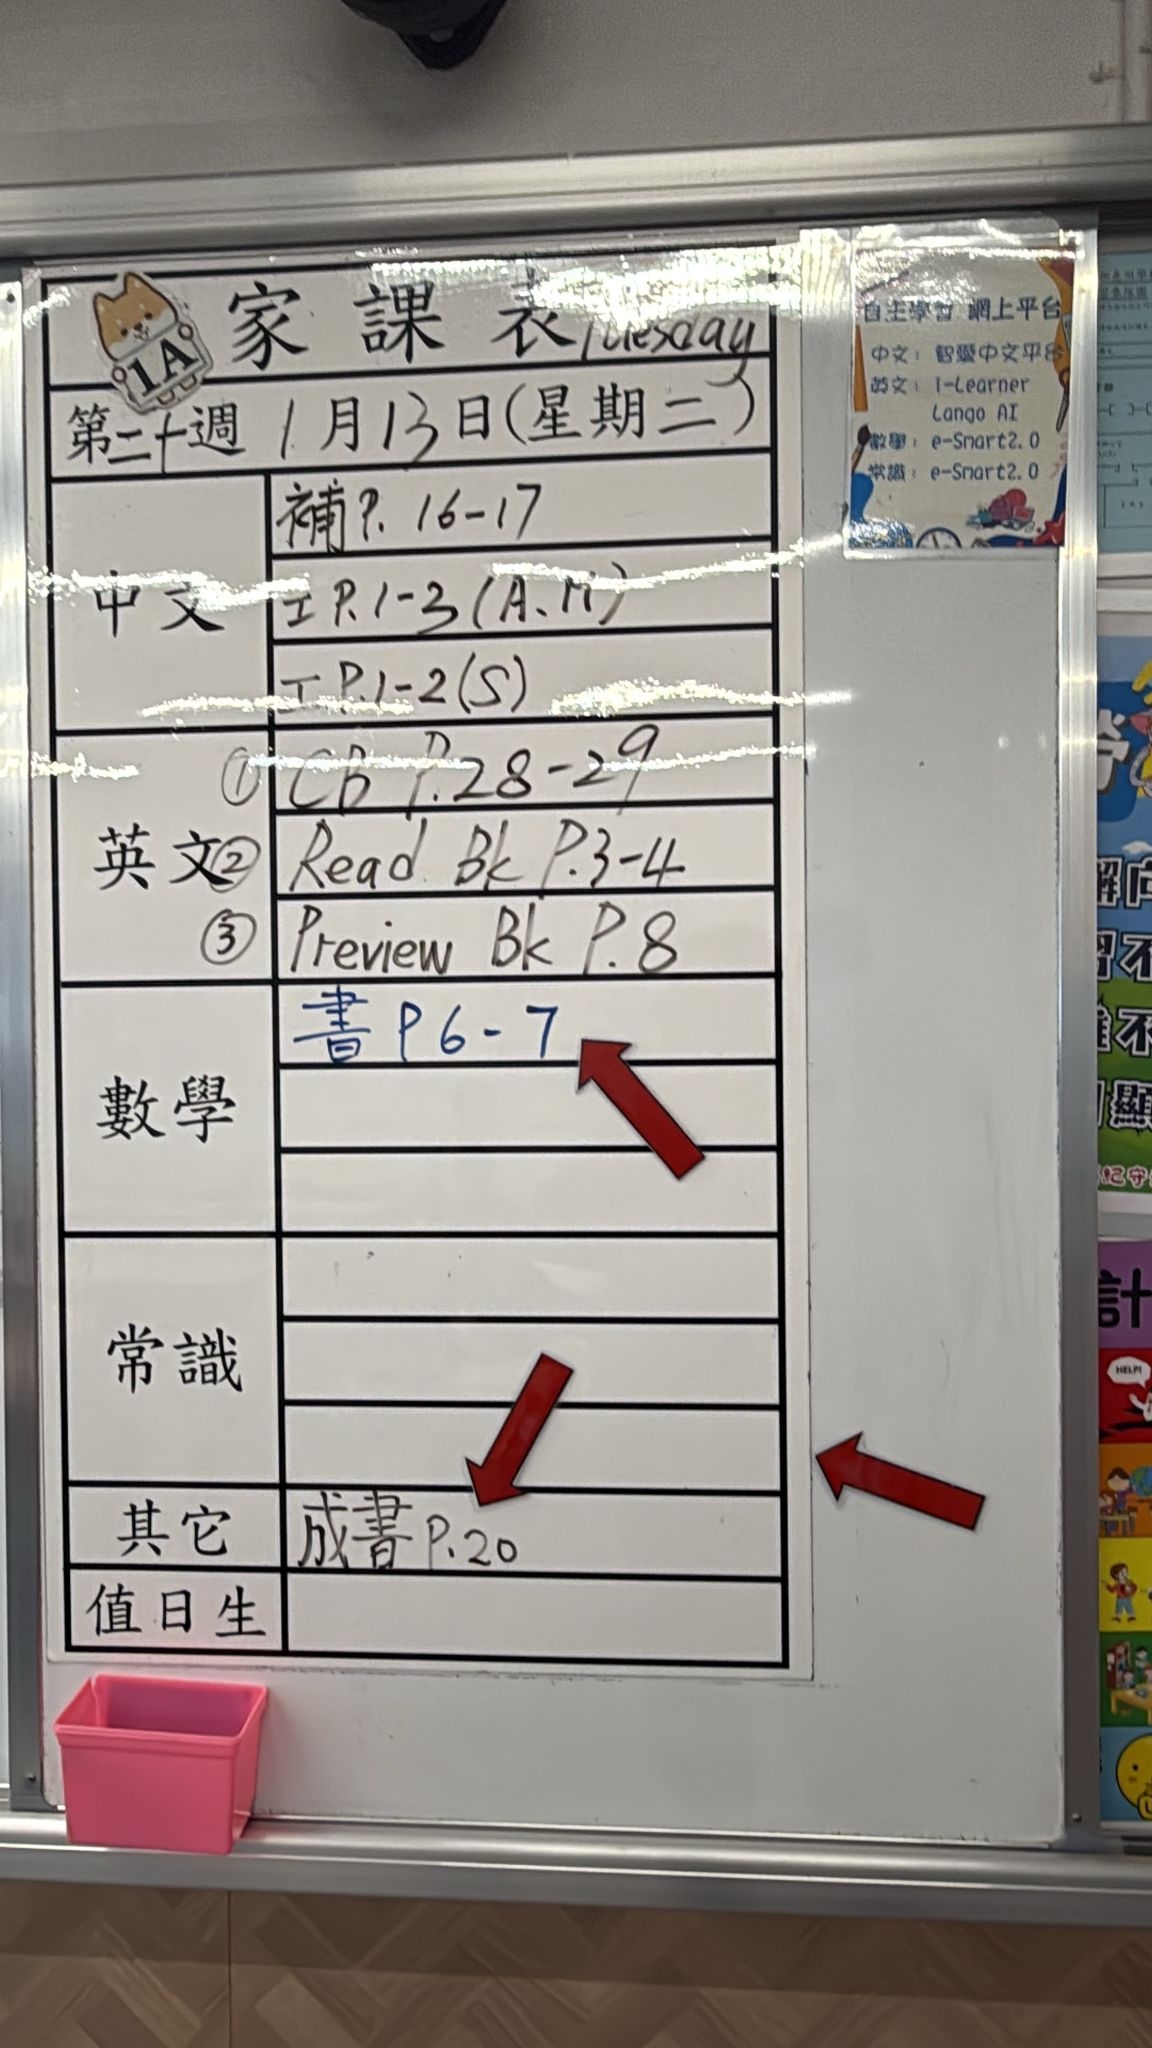 家課表 Tuesday
1A
第二十週 1月13日(星期二)
中文
補P. 16-17
工 P.1-3 (A.M)
工 P.1-2(S)
英文
① CB P.28-29
② Read Bk P.3-4
③ Preview Bk P.8
數學
書 P 6-7
常識
其它
成書 P.20
值日生
自主學習 網上平台
中文: 智愛中文平台
英文: I-Learner
Lango AI
數學: e-Smart2.0
常識: e-Smart2.0
習不
難不
顯
計
HELP!